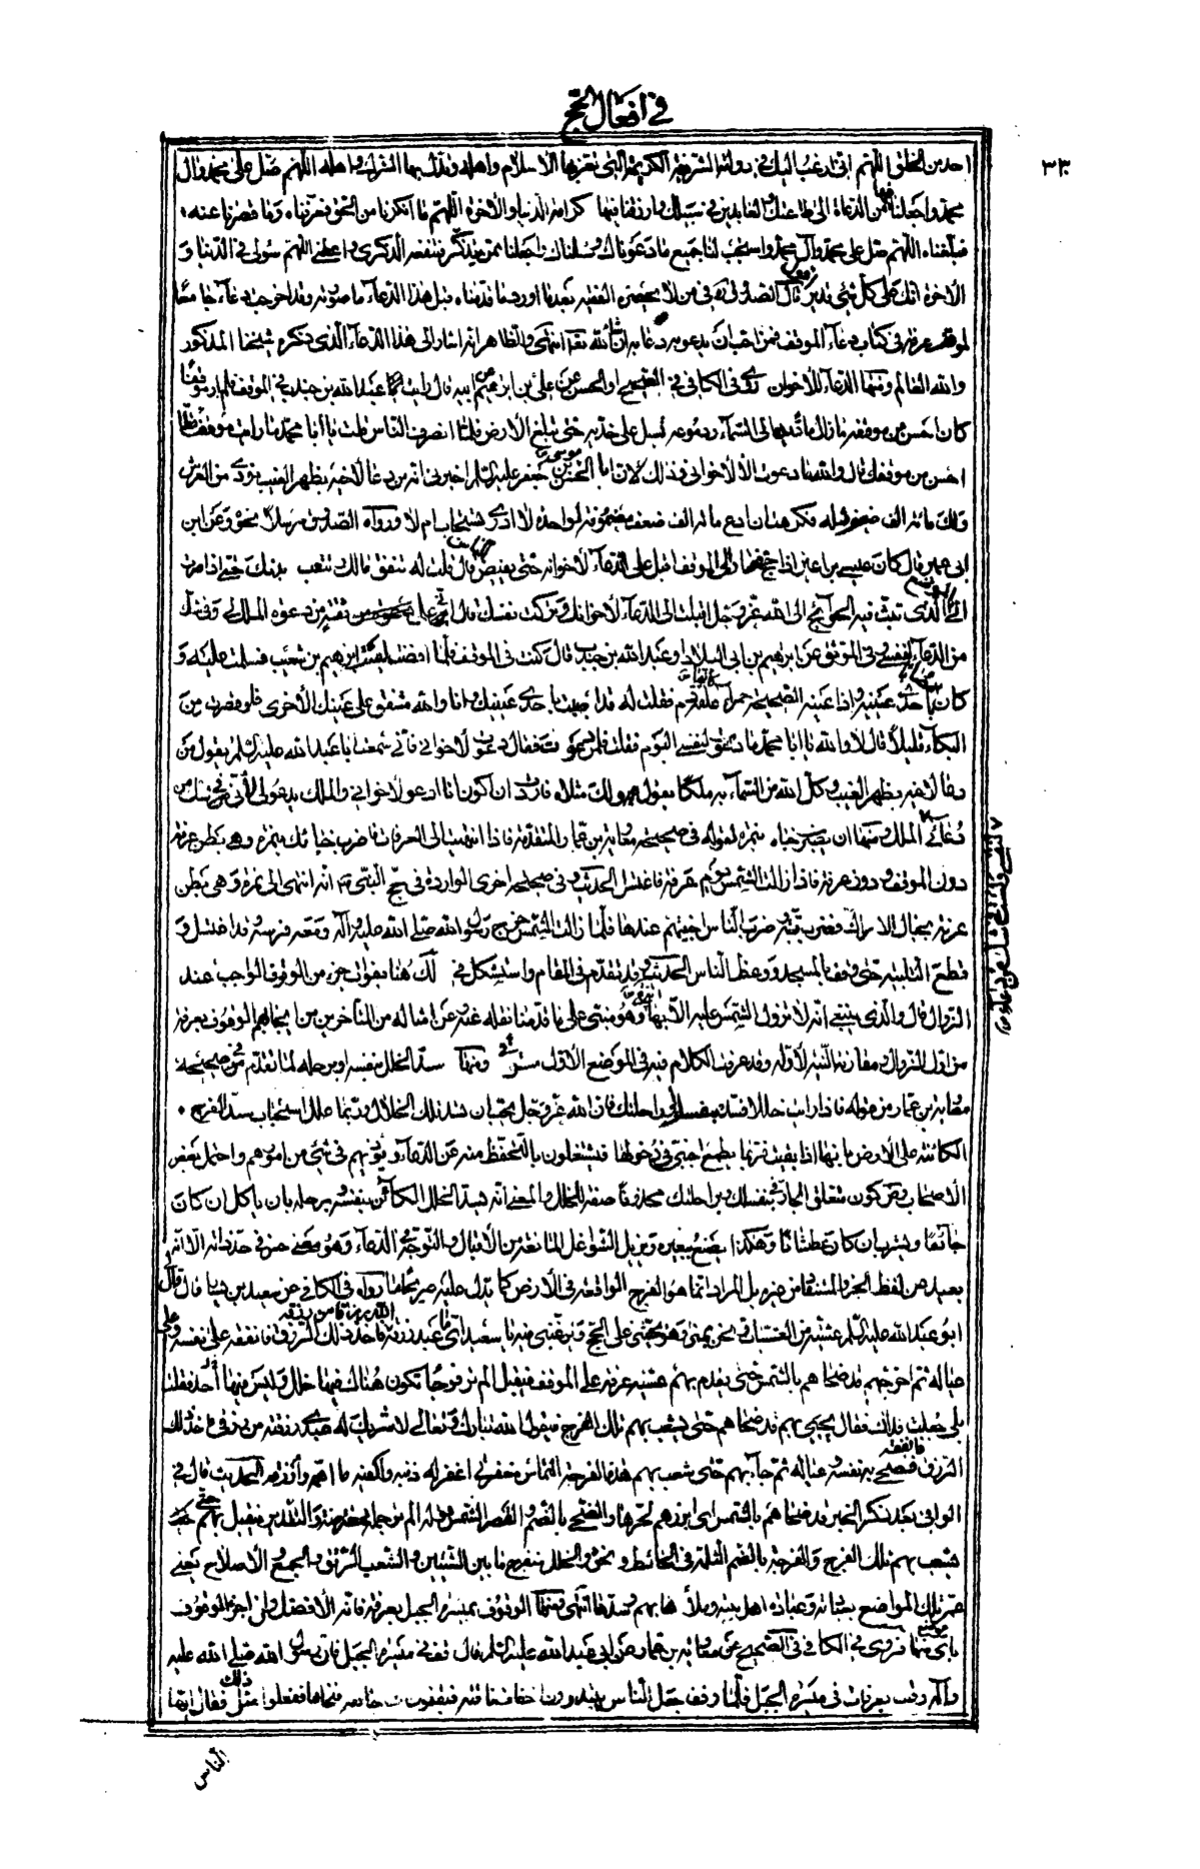 في افعال الحج
٣٣٠
احد من الخلق اللهم انى ارغب اليك في دولة الشريفة الكريمة التى تعز بها الاسلام واهله وتذل بها الشرك واهله اللهم صل على محمد وال
محمد واجعلنا فيها من الدعاة الى طاعتك والقائدين في سبيلك وارزقنا فيها كرامة الدنيا والاخرة اللهم ما انكرنا من الحق فعرفناه وما قصرنا عنه
فبلغناه اللهم صل على محمد وآل محمد واستجب لنا جميع ما دعوناك وسئلناك واجعلنا ممن يتذكر فتنفعه الذكرى واعطنى اللهم سولى في الدنيا و
الاخرة انك على كل شئ قدير قال الصدوق في من لا يحضره الفقيه بعد ما اورد ما قدمناه قبل هذا الدعآء ما صورته وقد اخرجت دعآء جامعا
لموقف عرفة في كتاب دعآء الموقف فمن احب ان يدعو به دعا به ان شاء الله تعالى انتهى والظاهر انه اشار الى هذا الدعآء الذى ذكره شيخنا المذكور
والله العالم ومنها الدعآء للأخوان روى في الكافى في الصحيح او الحسن عن على بن ابرهيم عن ابيه قال رايت عبد الله بن جندب في الموقف فلم ار موقفا
كان احسن من موقفه ما زال مادا يديه الى السمآء ودموعه تسيل على خديه حتى تبلغ الارض فلما انصرف الناس قلت يا أبا محمد ما رايت موقفا قط
احسن من موقفك قال والله ما دعوت الا لاخوانى وذلك لان ابا الحسن موسى بن جعفر عليه السلم اخبرنى انه من دعا لاخيه بظهر الغيب نودى من العرش
ولك مائة الف ضعف مثله فكرهت ان ادع مائة الف ضعف مضمونة لواحدة لا ادرى تستجاب ام لا ورواه الصدوق مرسلا نحوه وعن ابن
ابى عمير قال كان عيسى بن اعين اذا حج فصار الى الموقف اقبل على الدعآء لاخوانه حتى يفيض الناس قال قلت له تنفق مالك تتعب بدنك حتى اذا صرت
الى الموضع الذى تبث فيه الحوائج الى الله عز وجل اقبلت الى الدعآء لاخوانك وتركت نفسك قال انى على ثقة من دعوة الملك لى وفى شك
من الدعآء لنفسى وفى الموثق عن ابرهيم بن ابى البلاد او عبد الله بن جندب قال كنت في الموقف فلما افضت لقيت ابرهيم بن شعيب فسلمت عليه و
كان مصابا باحدى عينيه واذا عينه الصحيحة حمرآء كانها علقة دم فقلت له قد اصبت باحدى عينيك وانا والله مشفق على عينك الأخرى فلو قصرت من
البكآء قليلا قال لا والله يا أبا محمد ما دعوت لنفسى اليوم فقلت فلمن دعوت فقال دعوت لاخوانى فانى سمعت ابا عبد الله عليه السلم يقول من
دعا لاخيه بظهر الغيب وكل الله من السمآء به ملكا يقول ولك مثلاه فاردت ان اكون انا ادعو لاخوانى والملك يدعو لى لأنى في شك من
دعآئى لنفسى ولست في شك من دعآء
الملك ومنها ان يضرب خباه بنمرة لقوله في صحيحة معاوية بن عمار المتقدمة فاذا انتهيت الى العرفات فاضرب خبائك بنمرة وهى بطن عرنة
دون الموقف ودون عرفة فاذا زالت الشمس يوم عرفة فاغتسل الحديث وفى صحيحة اخرى الواردة في حج النبى انه انتهى الى نمرة وهى بطن
عرنة بحيال الاراك فضرب قبته وضرب الناس اخبيتهم عندها فلما زالت الشمس خرج رسول الله صلى الله عليه وآله ومعه فرسه وقد اغتسل و
قطع التلبية حتى وقف بالمسجد ووعظ الناس الحديث وقد تقدم في المقام واستشكل في ذلك هنا بفوات جزء من الوقوف الواجب عند
الزوال قال والذى ينبغى انه لا تزول الشمس عليه الا بها انتهى وهو مبتى على ما قدمنا نقله عنه وعن امثاله من المتأخرين من ايجابهم الوقوف بعرفة
من اول الزوال ومقارنة النية لأوله وقد عرفت الكلام فيه في الموضع الأول ومنها سد الخلل بنفسه او برحله لما تقدم في صحيحة
معاوية بن عمار من قوله فاذا رايت خللا فسده بنفسك وراحلتك فان الله عز وجل يحب ان تسد تلك الخلال وربما علل استحباب سد الفرج
الكائنة على الأرض بانها اذا بقيت فربما يطمع اجنبى في دخولها فيشتغلون بالتحفظ منه عن الدعآء ويؤذيهم في شئ من امورهم واحتمل بعض
الاصحاب كون متعلق الجار في بنفسك وبراحلتك محذوفا صفة للخلل والمعنى انه يسد الخلل الكائن بنفسه وبرحله بان ياكل ان كان
جائعا ويشرب ان كان عطشانا وهكذا يصنع ببعيره ويزيل الشواغل المانعة من الأقبال والتوجه في الدعآء وهو معنى حسن في حد ذاته الا انه
بعيد عن لفظ الخبر بل المراد انما هو الفرج الواقعة في الأرض كما يدل عليه صريحا ما رواه في الكافى عن سعيد بن يسار قال قال
ابو عبد الله عليه السلم عشية من العشيات ونحن بمنى وهو يحثنى على الحج ويرغبنى فيه يا سعيد ايما عبد رزقه الله رزقا من رزقه فاخذ ذلك الرزق فانفقه على نفسه وعلى
عياله ثم اخرجهم قد ضحاهم بالشمس حتى يقدم بهم عشية عرفة على الموقف فيقيل الم تر فرجا تكون هناك فيها خلل وليس فيها احد فقلت
بلى جعلت فداك فقال يجيى بهم قد ضحاهم حتى يشعب بهم تلك الفرج فيقول الله تبارك وتعالى لا شريك له عبدى رزقته من رزقى فاخذ ذلك
الرزق فانفقه فضحى به نفسه وعياله ثم جآء بهم حتى شعب بهم هذه الفرجة التماس مغفرتى اغفر له ذنبه واكفيه ما اهمه وأرزقه الحديث قال في
الوافى بعد نكر الخبر قد ضحاهم بالشمس اى ابرزهم لحرها والضحى بالضم والقصر الشمس
يشعب بهم تلك الفرج والفرجة بالضم الثلمة في الحائط ونحوه والخلل منفرج ما بين الشيئين والشعب الرتق والجمع والأصلاح يعنى
حتى تلك المواضع بدنه وعباده اهل بيته ويملأ ها بهم ويسدها انتهى ومنها الوقوف بميسرة الجبل بعرفة فانه الأفضل وان اجزء الوقوف
باى موضع منها فروى في الكافى في الصحيح عن معاوية بن عمار عن ابى عبد الله عليه السلم قال قف في ميسرة الجبل فان رسول الله صلى الله عليه
وآله وقف بعرفات في ميسرة الجبل فلما وقف جعل الناس يبتدرون اخفاف ناقته فيقفون الى جانبه فنحاها ففعلوا مثل ذلك فقال ايها
الناس